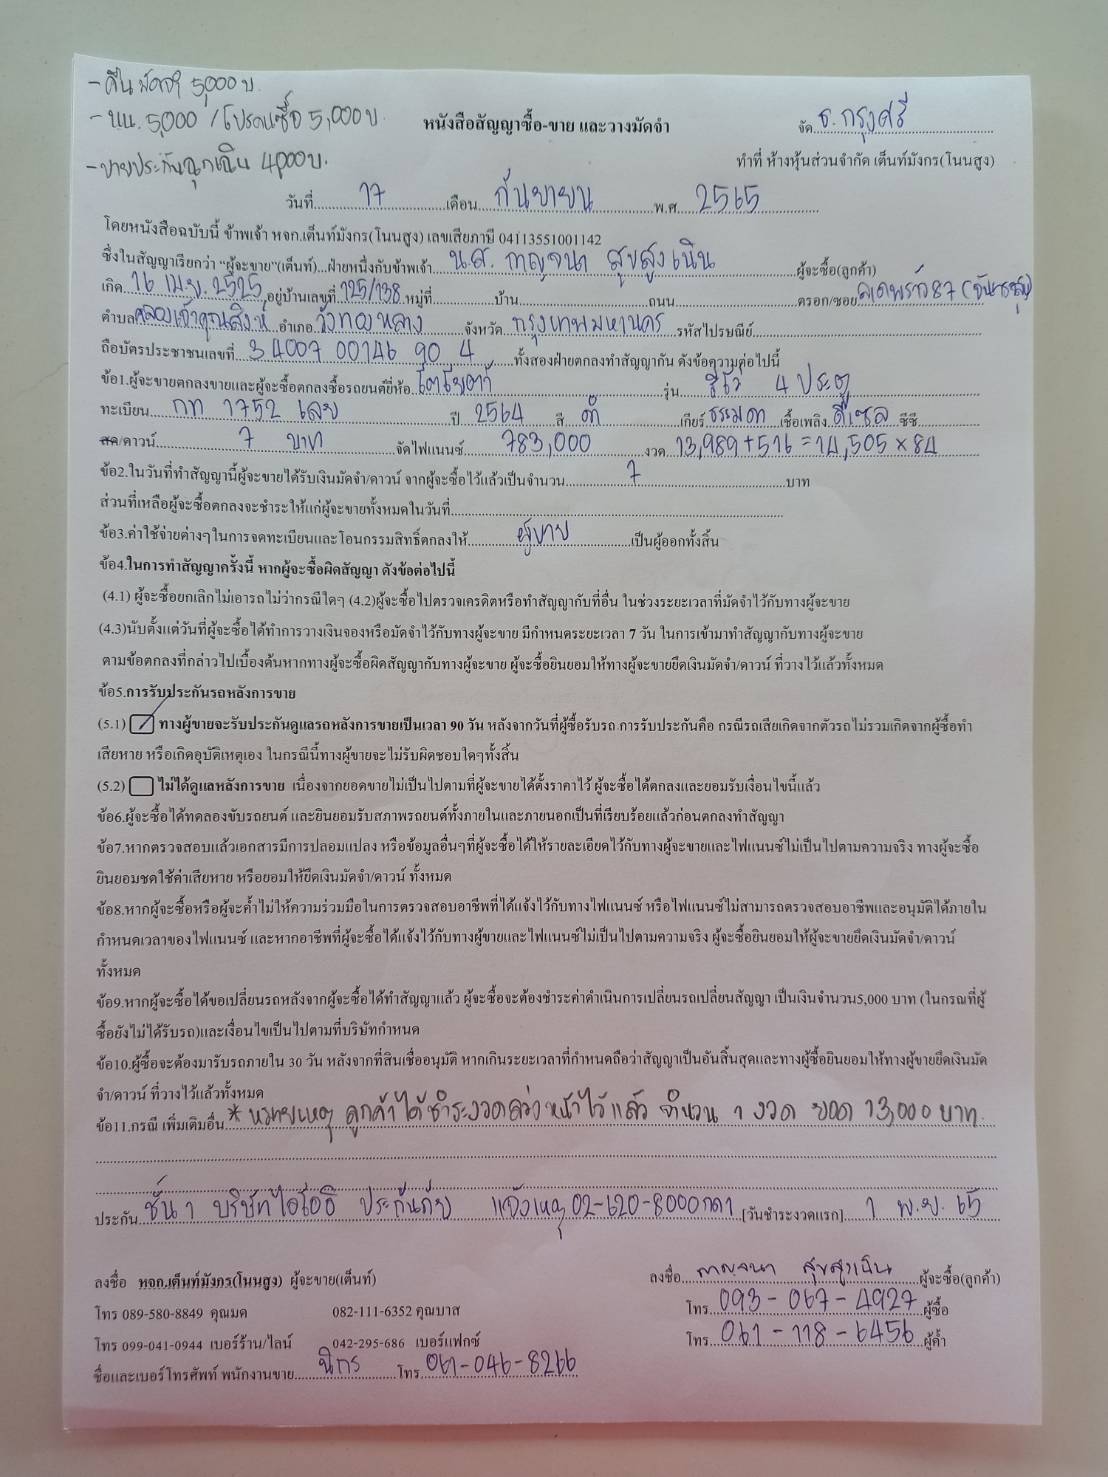 - คืนมัดจำ 5,000 บ.
- นน. 5,000 / โปรดนซื้อ 5,000 บ
- ขายประกันฉุกเฉิน 4,000 บ.
หนังสือสัญญาซื้อ-ขาย และวางมัดจำ
จัด ธ. กรุงศรี
ทำที่ ห้างหุ้นส่วนจำกัด เต็นท์มังกร(โนนสูง)
วันที่ 17 เดือน กันยายน พ.ศ. 2565
โดยหนังสือฉบับนี้ ข้าพเจ้า หจก.เต็นท์มังกร(โนนสูง) เลขเสียภาษี 04113551001142
ซึ่งในสัญญาเรียกว่า "ผู้จะขาย"(เต็นท์)...ฝ่ายหนึ่งกับข้าพเจ้า น.ส. กาญจนา สุขสูงเนิน ผู้จะซื้อ(ลูกค้า)
เกิด 16 เม.ย. 2525 อยู่บ้านเลขที่ 125/138 หมู่ที่ บ้าน ถนน ตรอก/ซอย ลาดพร้าว 87 (จันทราสุข)
ตำบล คลองเจ้าคุณสิงห์ อำเภอ วังทองหลาง จังหวัด กรุงเทพมหานคร รหัสไปรษณีย์
ถือบัตรประชาชนเลขที่ 3 4007 00146 90 4 ทั้งสองฝ่ายตกลงทำสัญญากัน ดังข้อความต่อไปนี้
ข้อ1.ผู้จะขายตกลงขายและผู้จะซื้อตกลงซื้อรถยนต์ยี่ห้อ โตโยต้า รุ่น รีโว่ 4 ประตู
ทะเบียน กท 1752 เลย ปี 2564 สี ดำ เกียร์ ธรรมดา เชื้อเพลิง ดีเซล ซีซี
สด/ดาวน์ 7 บาท จัดไฟแนนซ์ 783,000 งวด 13,989+516 = 14,505 × 84
ข้อ2.ในวันที่ทำสัญญานี้ผู้จะขายได้รับเงินมัดจำ/ดาวน์ จากผู้จะซื้อไว้แล้วเป็นจำนวน 7 บาท
ส่วนที่เหลือผู้จะซื้อตกลงจะชำระให้แก่ผู้จะขายทั้งหมดในวันที่
ข้อ3.ค่าใช้จ่ายต่างๆในการจดทะเบียนและโอนกรรมสิทธิ์ตกลงให้ ผู้ขาย เป็นผู้ออกทั้งสิ้น
ข้อ4.ในการทำสัญญาครั้งนี้ หากผู้จะซื้อผิดสัญญา ดังข้อต่อไปนี้
(4.1) ผู้จะซื้อยกเลิกไม่เอารถไม่ว่ากรณีใดๆ (4.2)ผู้จะซื้อไปตรวจเครดิตหรือทำสัญญากับที่อื่น ในช่วงระยะเวลาที่มัดจำไว้กับทางผู้จะขาย
(4.3)นับตั้งแต่วันที่ผู้จะซื้อได้ทำการวางเงินจองหรือมัดจำไว้กับทางผู้จะขาย มีกำหนดระยะเวลา 7 วัน ในการเข้ามาทำสัญญากับทางผู้จะขาย
ตามข้อตกลงที่กล่าวไปเบื้องต้นหากทางผู้จะซื้อผิดสัญญากับทางผู้จะขาย ผู้จะซื้อยินยอมให้ทางผู้จะขายยึดเงินมัดจำ/ดาวน์ ที่วางไว้แล้วทั้งหมด
ข้อ5.การรับประกันรถหลังการขาย
(5.1) ทางผู้ขายจะรับประกันดูแลรถหลังการขายเป็นเวลา 90 วัน หลังจากวันที่ผู้ซื้อรับรถ การรับประกันคือ กรณีรถเสียเกิดจากตัวรถไม่รวมเกิดจากผู้ซื้อทำ
เสียหาย หรือเกิดอุบัติเหตุเอง ในกรณีนี้ทางผู้ขายจะไม่รับผิดชอบใดๆทั้งสิ้น
(5.2) ไม่ได้ดูแลหลังการขาย เนื่องจากยอดขายไม่เป็นไปตามที่ผู้จะขายได้ตั้งราคาไว้ ผู้จะซื้อได้ตกลงและยอมรับเงื่อนไขนี้แล้ว
ข้อ6.ผู้จะซื้อได้ทดลองขับรถยนต์ และยินยอมรับสภาพรถยนต์ทั้งภายในและภายนอกเป็นที่เรียบร้อยแล้วก่อนตกลงทำสัญญา
ข้อ7.หากตรวจสอบแล้วเอกสารมีการปลอมแปลง หรือข้อมูลอื่นๆที่ผู้จะซื้อได้ให้รายละเอียดไว้กับทางผู้จะขายและไฟแนนซ์ไม่เป็นไปตามความจริง ทางผู้จะซื้อ
ยินยอมชดใช้ค่าเสียหาย หรือยอมให้ยึดเงินมัดจำ/ดาวน์ ทั้งหมด
ข้อ8.หากผู้จะซื้อหรือผู้จะค้ำไม่ให้ความร่วมมือในการตรวจสอบอาชีพที่ได้แจ้งไว้กับทางไฟแนนซ์ หรือไฟแนนซ์ไม่สามารถตรวจสอบอาชีพและอนุมัติได้ภายใน
กำหนดเวลาของไฟแนนซ์ และหากอาชีพที่ผู้จะซื้อได้แจ้งไว้กับทางผู้ขายและไฟแนนซ์ไม่เป็นไปตามความจริง ผู้จะซื้อยินยอมให้ผู้จะขายยึดเงินมัดจำ/ดาวน์
ทั้งหมด
ข้อ9.หากผู้จะซื้อได้ขอเปลี่ยนรถหลังจากผู้จะซื้อได้ทำสัญญาแล้ว ผู้จะซื้อจะต้องชำระค่าดำเนินการเปลี่ยนรถเปลี่ยนสัญญา เป็นเงินจำนวน5,000 บาท (ในกรณที่ผู้
ซื้อยังไม่ได้รับรถ)และเงื่อนไขเป็นไปตามที่บริษัทกำหนด
ข้อ10.ผู้ซื้อจะต้องมารับรถภายใน 30 วัน หลังจากที่สินเชื่ออนุมัติ หากเกินระยะเวลาที่กำหนดถือว่าสัญญาเป็นอันสิ้นสุดและทางผู้ซื้อยินยอมให้ทางผู้ขายยึดเงินมัด
จำ/ดาวน์ ที่วางไว้แล้วทั้งหมด
ข้อ11.กรณี เพิ่มเติมอื่น * หมายเหตุ ลูกค้าได้ชำระงวดล่วงหน้าไว้แล้ว จำนวน 1 งวด ยอด 13,000 บาท.
ประกัน ชั้น 1 บริษัทไอโออิ ประกันภัย แจ้งเหตุ 02-620-8000 กด 1 [วันชำระงวดแรก] 1 พ.ย. 65
ลงชื่อ หจก.เต็นท์มังกร(โนนสูง) ผู้จะขาย(เต็นท์)
ลงชื่อ กาญจนา สุขสูงเนิน ผู้จะซื้อ(ลูกค้า)
โทร 089-580-8849 คุณมด 082-111-6352 คุณบาส
โทร 093-067-4927 ผู้ซื้อ
โทร 099-041-0944 เบอร์ร้าน/ไลน์ 042-295-686 เบอร์แฟกซ์
โทร 061-118-6456 ผู้ค้ำ
ชื่อและเบอร์โทรศัพท์ พนักงานขาย นิกร โทร 061-046-8266